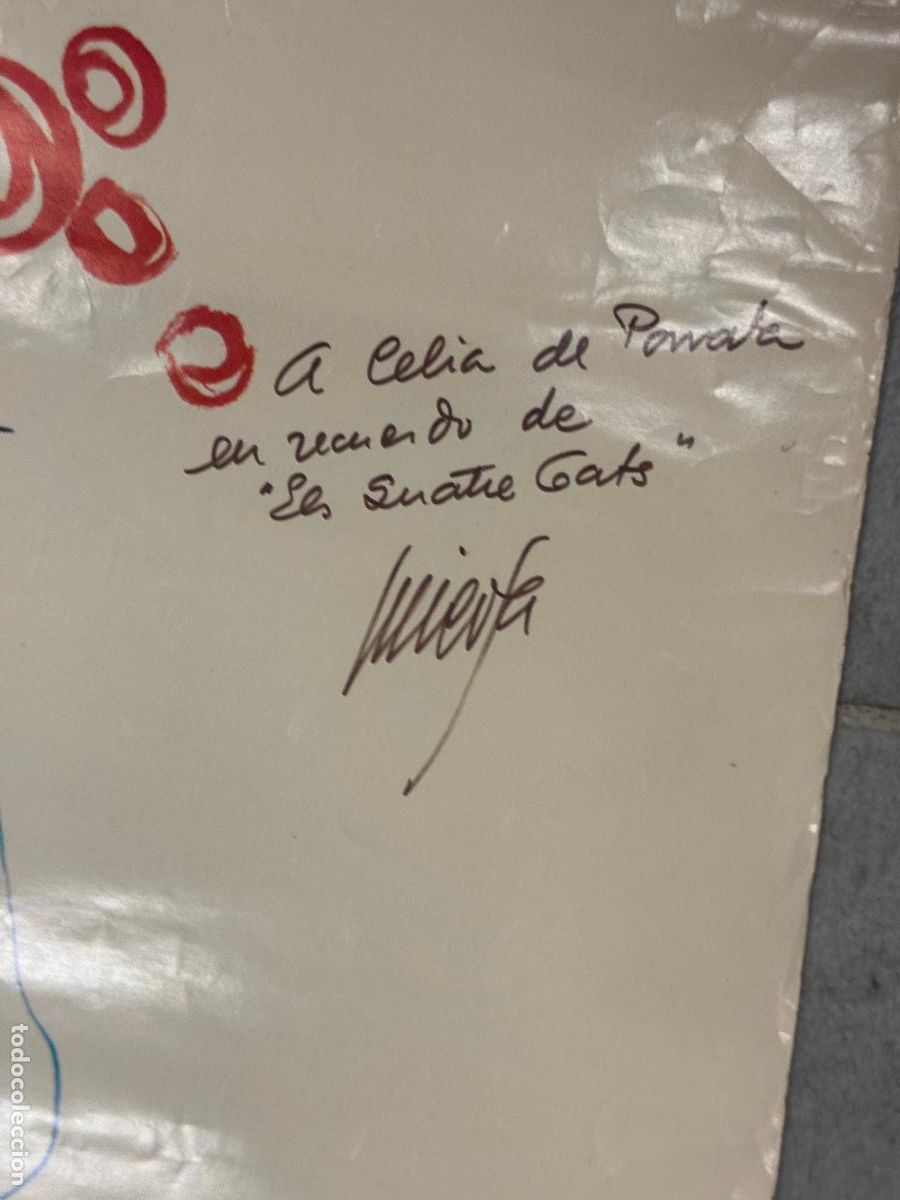 A Celia de
en recuerdo de
"Els Quatre Gats"
todocoleccion